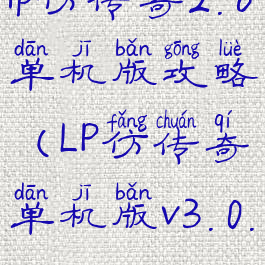 仿传奇2.0
dān jī bǎn gōng lüè
单机版攻略
fǎng chuán qí
（LP仿传奇
dān jī bǎn
单机版v3.0.